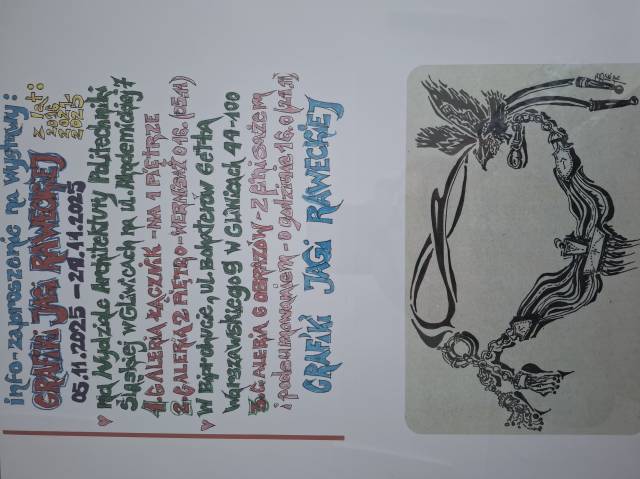 info-zaproszenie na wystawy:
GRAFIKI JAGI RAWECKIEJ
z lat:
2016
2021
2025
05.11.2025 – 27.11.2025
na Wydziale Architektury Politechniki
Śląskiej w Gliwicach na ul. Akademickiej 7
1. GALERIA ŁĄCZNIK - NA 1 PIĘTRZE
2. GALERIA 2 PIĘTRO - WERNISAŻ O 16. (05.11)
w Esprohucie, ul. Bohaterów Getta
Warszawskiego 9 w Gliwicach 44-100
3. GALERIA 6 OBRAZÓW - z finisażem
i podsumowaniem - o godzinie 16.
GRAFIKI JAGI RAWECKIEJ